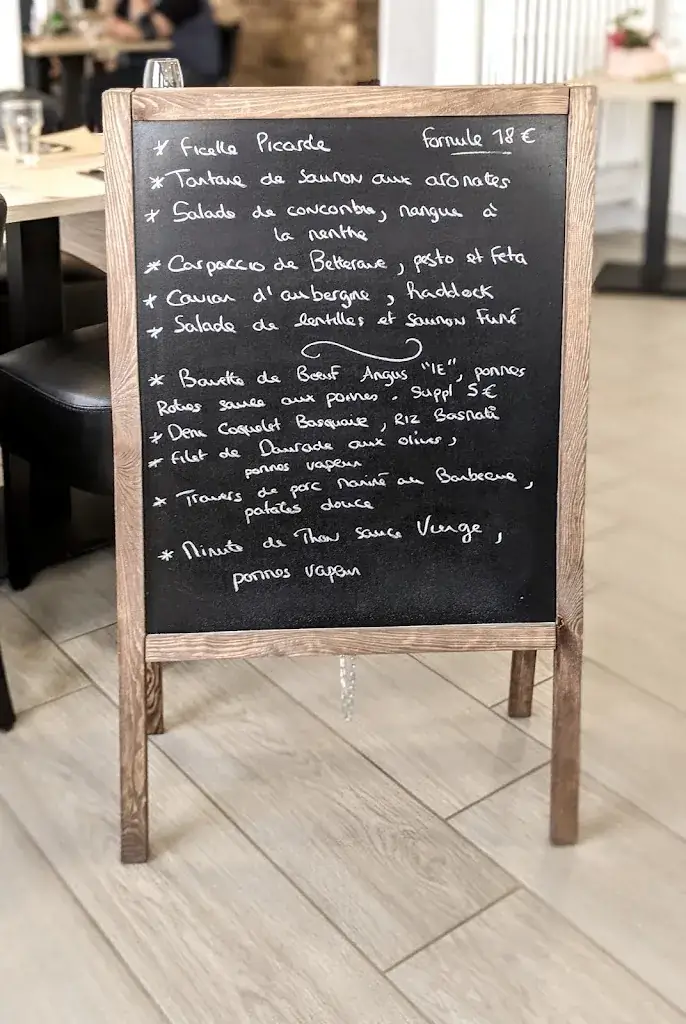 * Ficelle Picarde Formule 18 €
* Tartare de Saumon aux aromates
* Salade de concombre, mangue à
la menthe
* Carpaccio de Betterave, pesto et Feta
* Caviar d'aubergne, Haddock
* Salade de lentilles et Saumon Fumé
* Bavette de Boeuf Angus "IE", pommes
Roties sauce aux poivres. Suppl 5 €
* Demi Coquelet Basquaise, Riz Basmati
* Filet de Daurade aux olives,
pommes vapeur
* Travers de porc mariné au Barbecue,
patates douce
* Minute de Thon sauce Vierge,
pommes vapeur